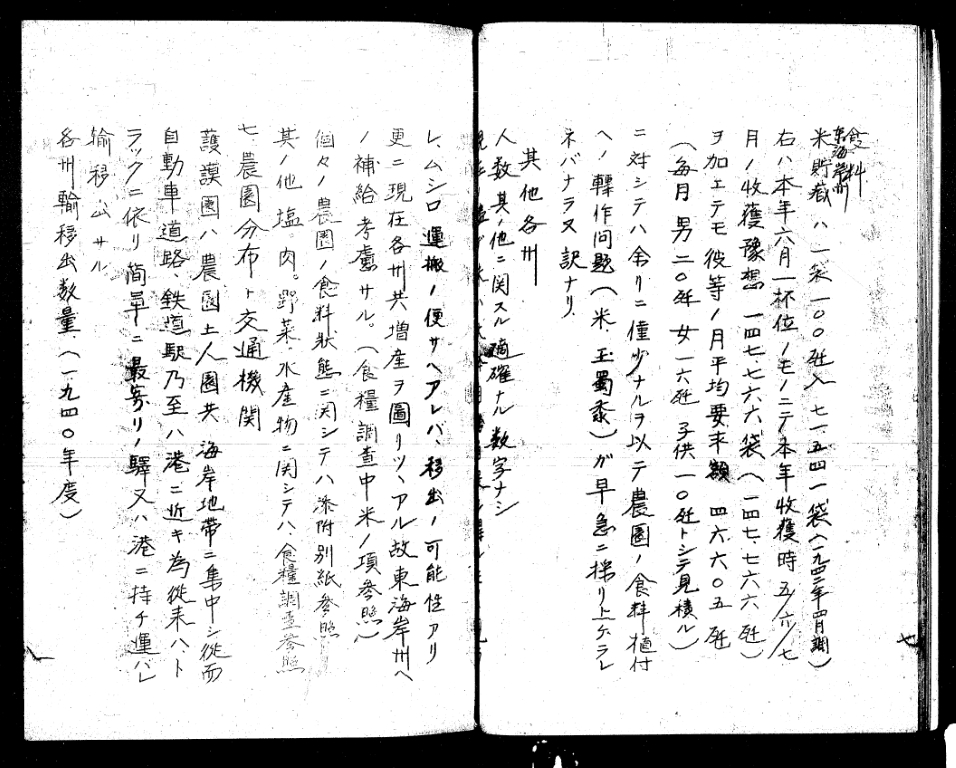 食料
東海岸州
米貯蔵ハ一袋一〇〇瓩入 七一、五四一袋(一九四二年四月調)
右ハ本年六月一杯位ノモノニテ本年収獲時五/六/七
月ノ收獲豫想 一四七、七六六袋(一四七、七六六瓩)
ヲ加エテモ彼等ノ月平均要求額 四六六〇五瓩
(毎月男二〇瓩 女一六瓩 子供一〇瓩トシテ見積ル)
ニ対シテハ余リニ僅少ナルヲ以テ農園ノ食料植付
ヘノ轉作问題(米、玉蜀黍)ガ早急ニ採リ上ゲラレ
ネバナラヌ訳ナリ
其他各州
人数其ノ他ニ関スル適確ナル数字ナシ
レ、ムシロ運搬ノ便サヘアレバ、移出ノ可能性アリ
更ニ現在各州共増産ヲ圖リツヽアル故東海岸州ヘ
ノ補給考慮サル。(食糧調査中米ノ項参照)
個々ノ農園ノ食料狀態ニ関シテハ添附別紙参照
其ノ他塩肉。野菜、水産物ニ関シテハ、食糧調査参照
七、農園分布ト交通機関
護謨園ハ農園土人園共海岸地帯ニ集中シ従而
自動車道路、鉄道駅乃至ハ港ニ近キ為従来ハト
ラックニ依リ簡單ニ最寄リノ驛又ハ港ニ持チ運バレ
輸移出サル
各州輸移出数量(一九四〇年度)
七